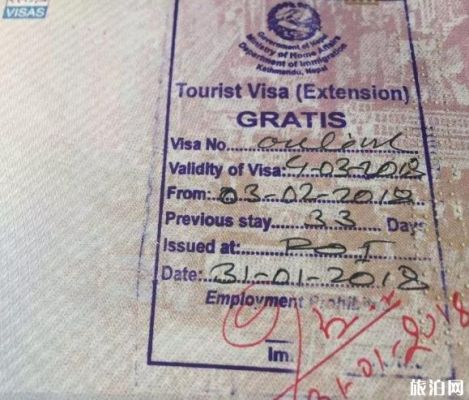 VISAS
Government of Nepal
Ministry of Home Affairs
Department of Immigration
Kathmandu, Nepal
Tourist Visa (Extension)
GRATIS
Visa No. online
Validity of Visa: 4-03-2018
From: 03-02-2018
Previous stay 33 Days
Issued at: DOI
Date: 31-01-2018
Employment Prohibi
Im
31-01-2018
旅泊网